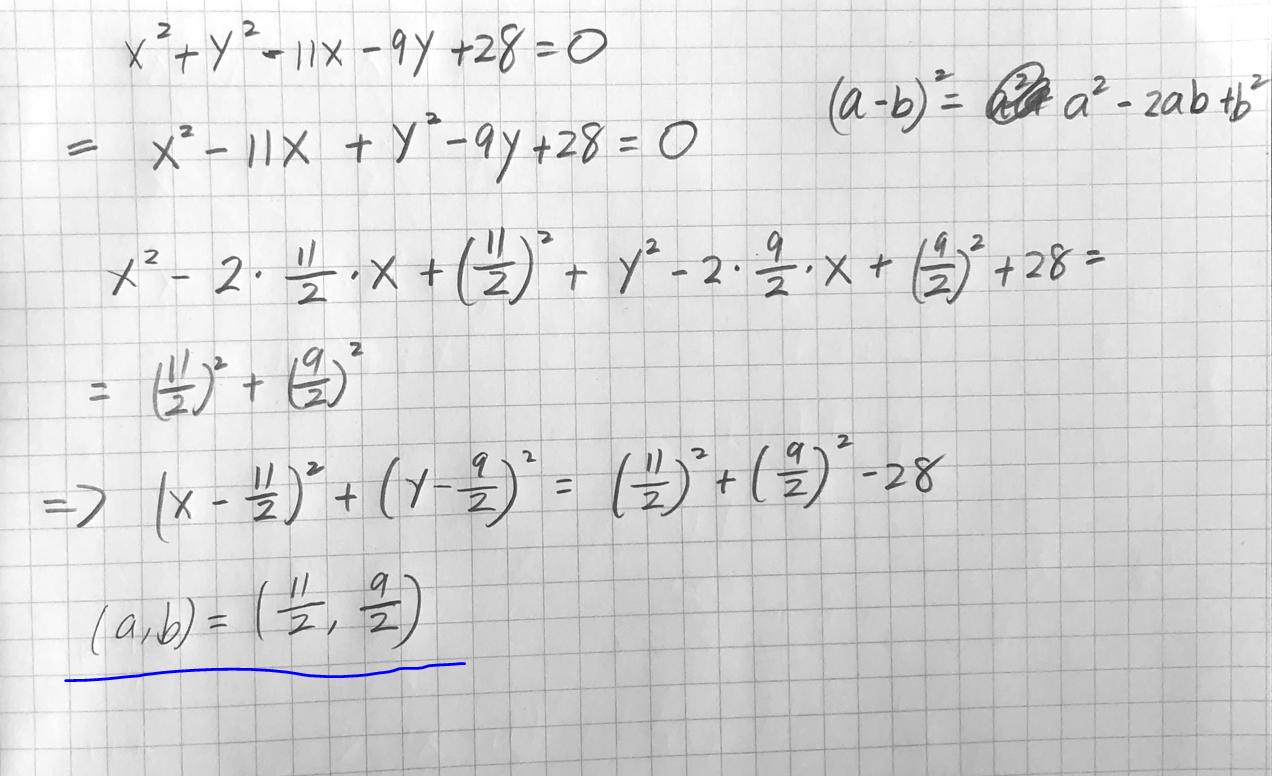 x² + y² - 11x - 9y + 28 = 0
(a-b)² = a² - 2ab + b²
= x² - 11x + y² - 9y + 28 = 0
x² - 2 · 11/2 · x + (11/2)² + y² - 2 · 9/2 · x + (9/2)² + 28 =
= (11/2)² + (9/2)²
=> (x - 11/2)² + (y - 9/2)² = (11/2)² + (9/2)² - 28
(a,b) = (11/2, 9/2)